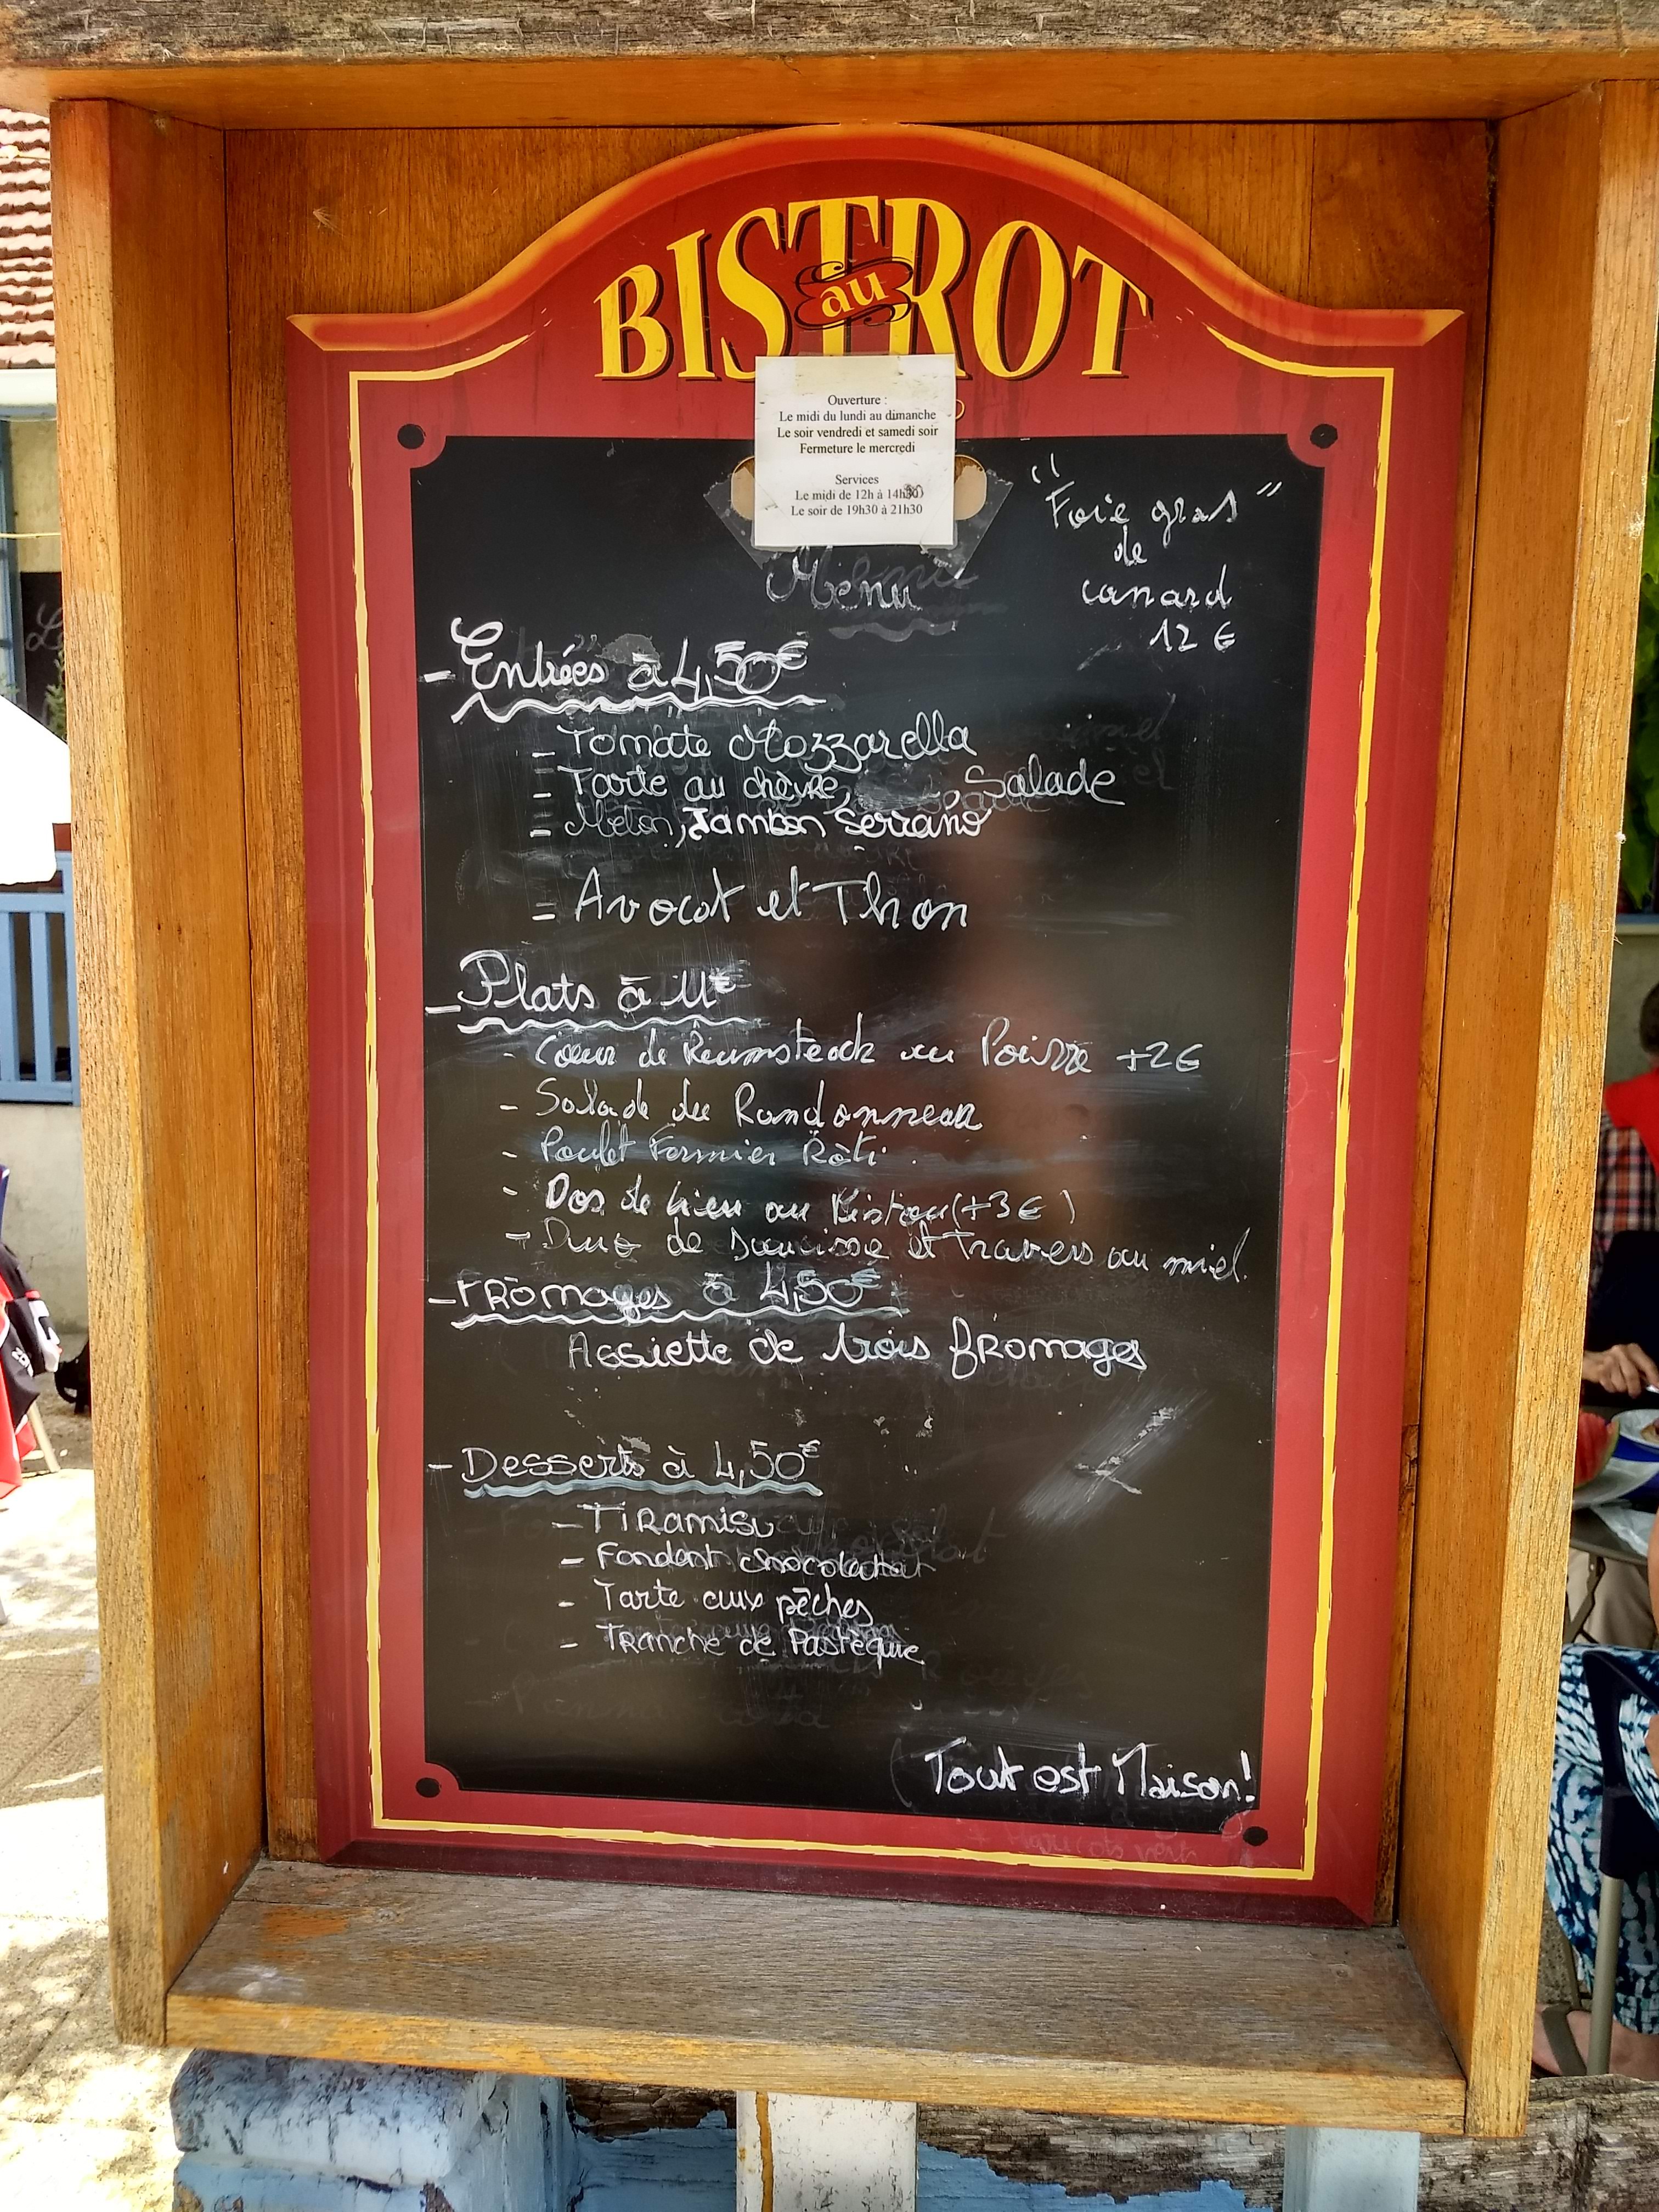 BISTROT
au
Ouverture :
Le midi du lundi au dimanche
Le soir vendredi et samedi soir
Fermeture le mercredi
Services
Le midi de 12h à 14h30
Le soir de 19h30 à 21h30
"Foie gras"
de
canard
12 €
Menu
- Entrées à 4,50€
- Tomate Mozzarella
- Tarte au chèvre, Salade
- Melon, Jambon Serrano
- Avocat et Thon
- Plats à 11€
- Coeur de Rumsteack au Poivre +2€
- Salade du Randonneur
- Poulet Fermier Rôti
- Dos de au (+3€)
- Duo de Saucisse et Travers au miel.
- Fromages à 4,50€
Assiette de trois fromages
- Desserts à 4,50€
- Tiramisu
- Fondant chocolat
- Tarte aux pêches
- Tranche de Pastèque
Tout est Maison!